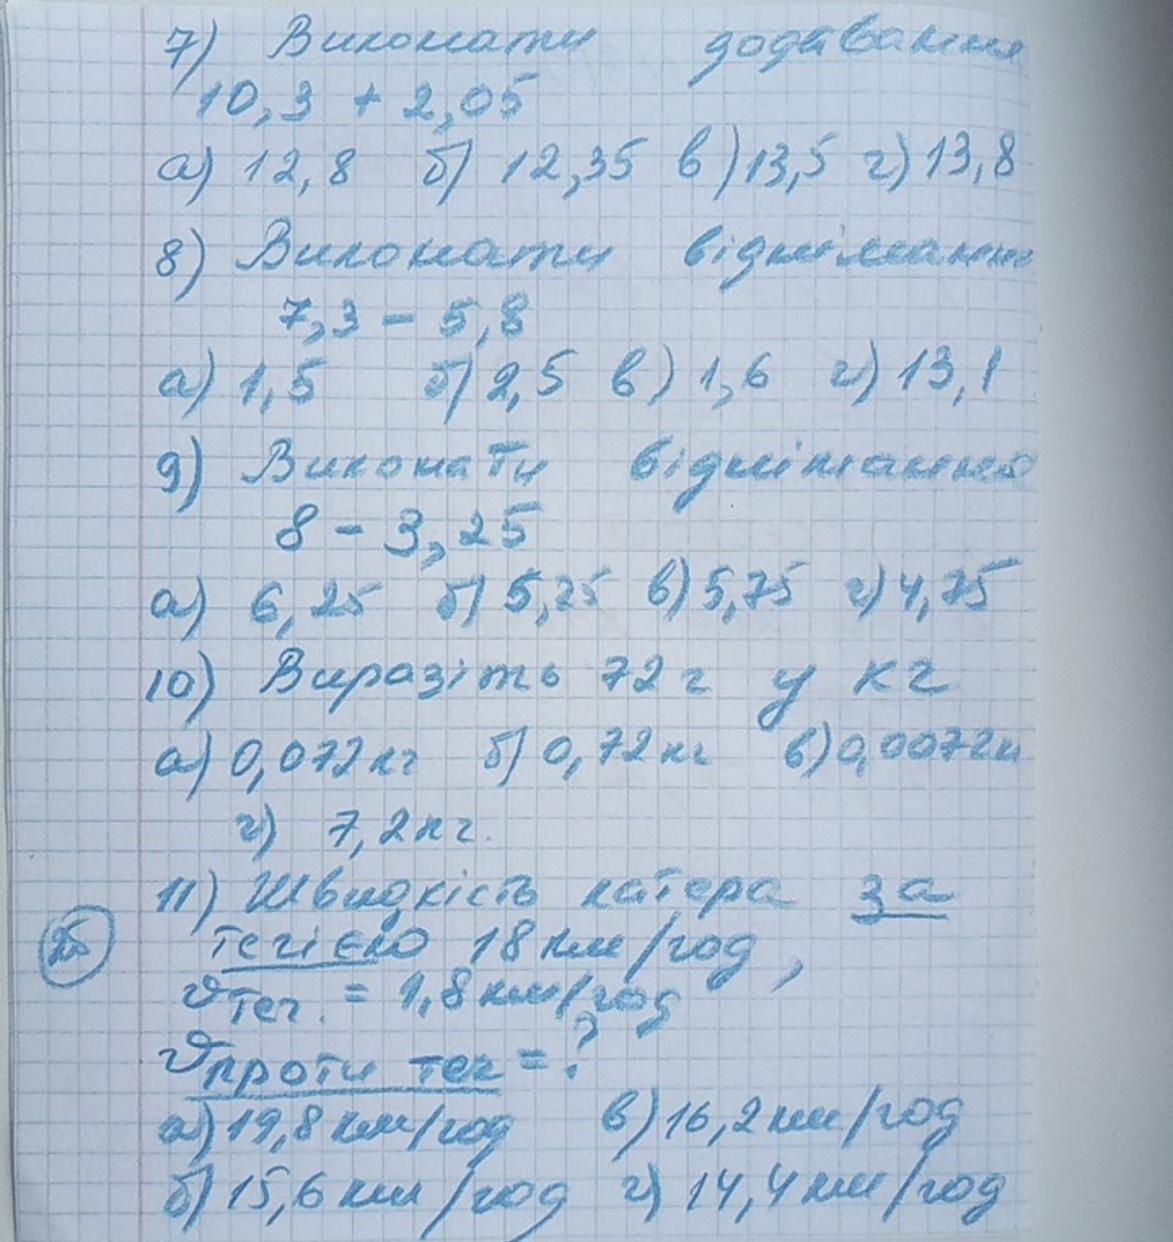 7) Виконати додавання
10,3 + 2,05
а) 12,8 б) 12,35 в) 13,5 г) 13,8
8) Виконати віднімання
7,3 - 5,8
а) 1,5 б) 2,5 в) 1,6 г) 13,1
9) Виконати віднімання
8 - 3,25
а) 6,25 б) 5,25 в) 5,75 г) 4,75
10) Виразіть 72 г у кг
а) 0,072 кг б) 0,72 кг в) 0,0072 кг
г) 7,2 кг.
11) Швидкість катера за
течією 18 км/год,
υ теч. = 1,8 км/год
υ проти теч = ?
а) 19,8 км/год в) 16,2 км/год
б) 15,6 км/год г) 14,4 км/год